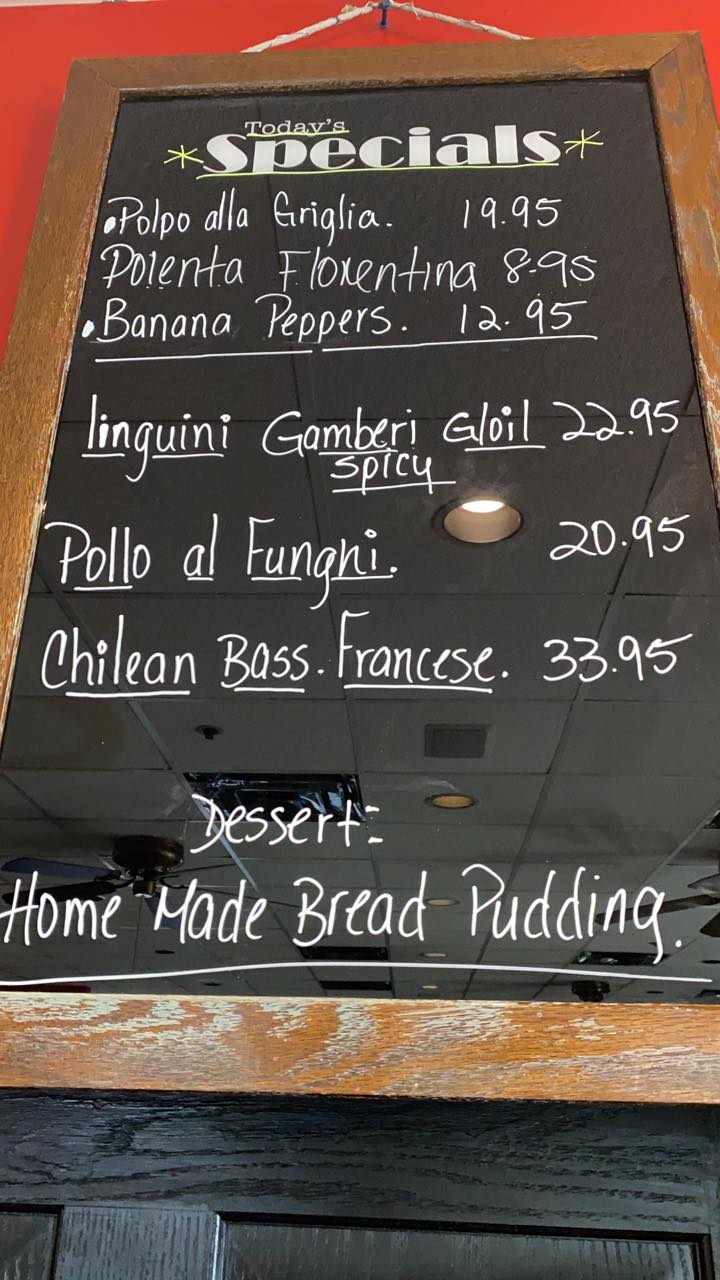 Today's
*Specials*
•Polpo alla Griglia. 19.95
Polenta Florentina 8.95
•Banana Peppers. 12.95
linguini Gamberi Gloil 22.95
spicy
Pollo al Funghi. 20.95
Chilean Bass. Francese. 33.95
Dessert:
Home Made Bread Pudding.